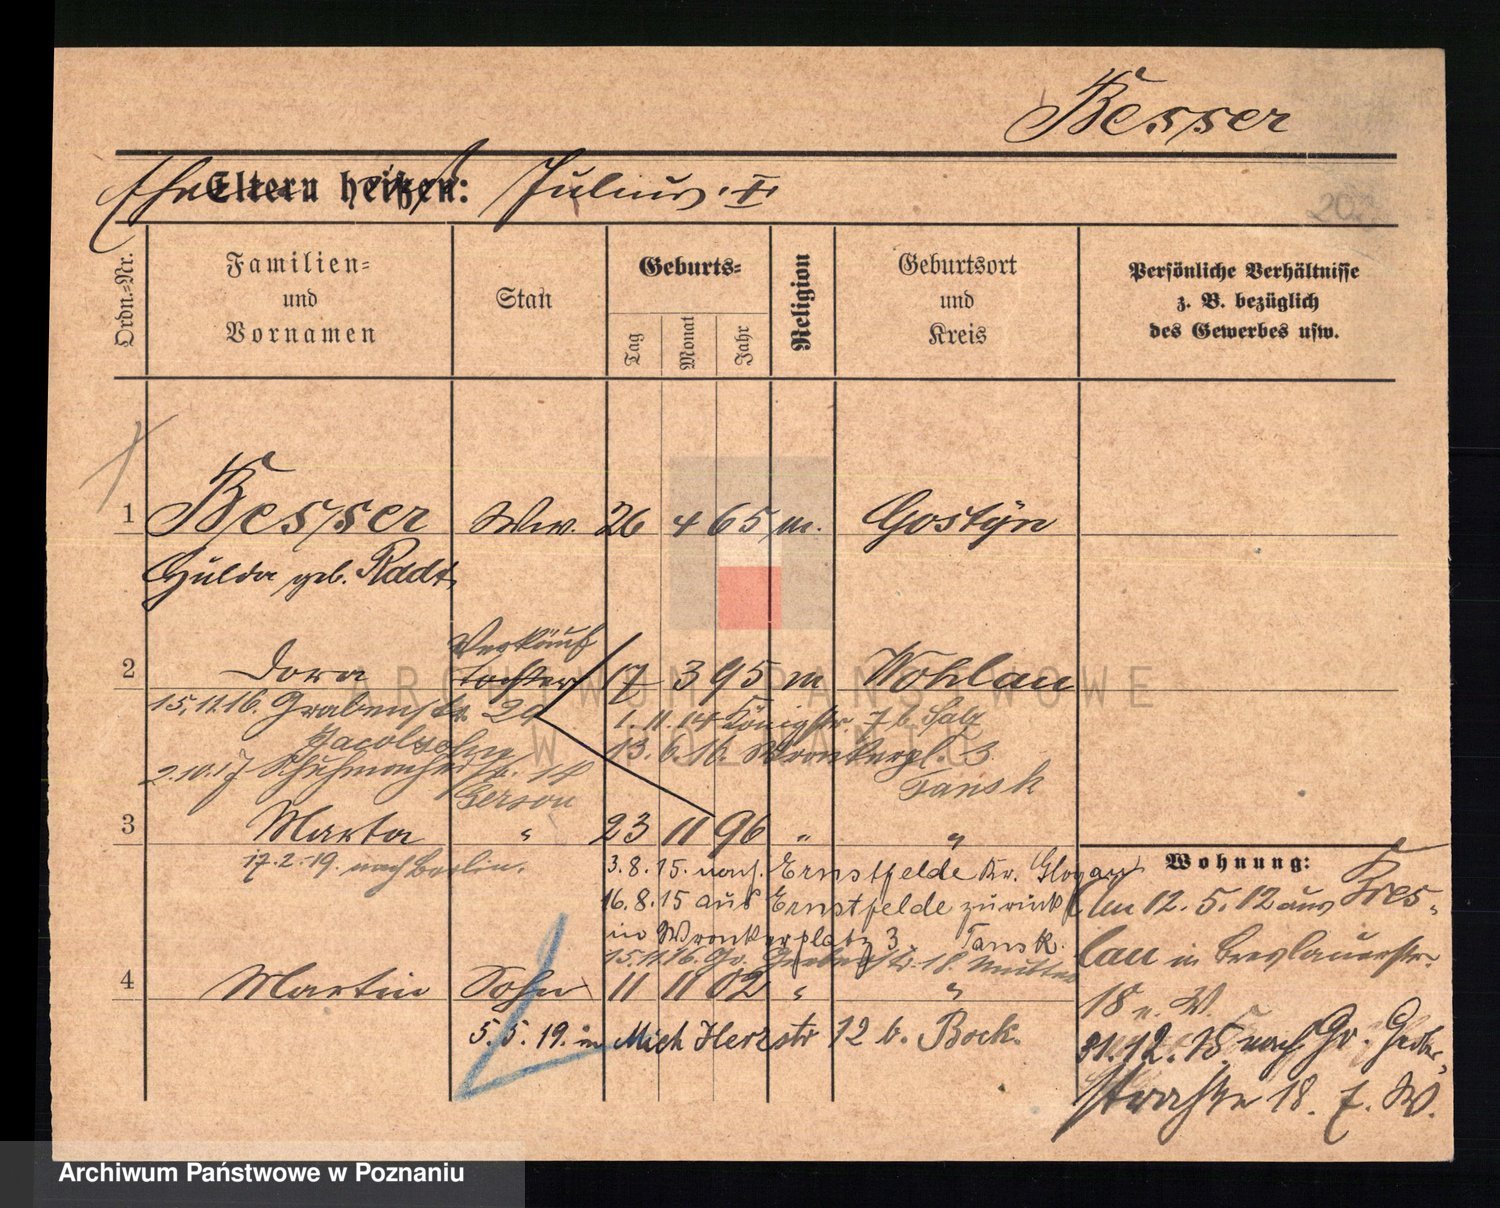 Besser
Eltern heißen: Julius I
202
Ordn.=Nr.
Familien=
und
Vornamen
Stan
Geburts=
Tag
Monat
Jahr
Religion
Geburtsort
und
Kreis
Persönliche Verhältnisse
z. B. bezüglich
des Gewerbes usw.
1 Besser Ww. 26 4 65 m. Gostÿn
Hulda geb.
Verkäuf
2 Dora Tochter 17 3 95 m Wohlau
15.11.16. Grabenstr. 20 1.11.14 Königstr. 7 b.
Jacobsohn 13.6.16. Wronkerpl. 3
2.10.17 Schuhmacherstr. 14 Tansk
Gerson
3 Marta " 23 11 96 " "
17.2.19. nach Berlin.
3.8.15. nach Ernstfelde Kr. Glogau
16.8.15 aus Ernstfelde zurück
in Wronkerplatz 3 Tansk.
15.11.16. Gr. 18. Mutter
4 Martin Sohn 11 11 02 " "
5.5.19. in Mich Herzstr 12 b. Bock.
Wohnung:
Am 12.5.12 aus Bres-
lau in Breslauerstr.
18 n. W.
31.12.15. nach Gr. Gerber-
straße 18. z. W.
ARCHIWUM PAŃSTWOWE
W POZNANIU
Archiwum Państwowe w Poznaniu